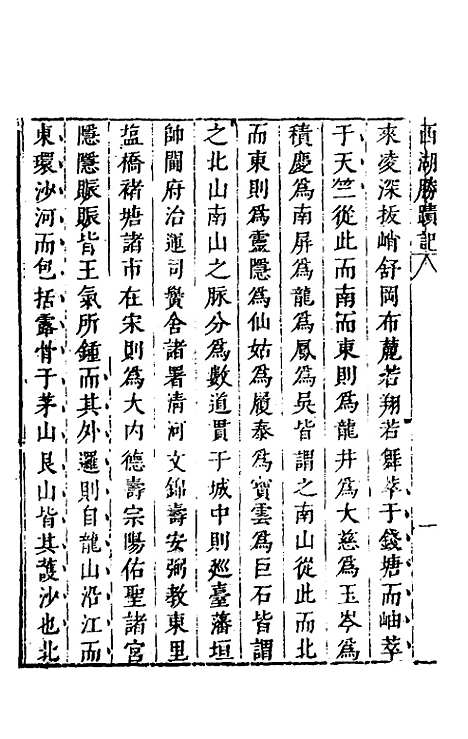 西湖勝蹟記
一
來凌深拔峭舒岡布麓若翔若舞萃于錢塘而岫萃
于天竺從此而南而東則為龍井為大慈為玉岑為
積慶為南屏為龍為鳳為吳皆謂之南山從此而北
而東則為靈隱為仙姑為履泰為寶雲為巨石皆謂
之北山南山之脉分為數道貫于城中則廵臺藩垣
帥閫府治運司黌舍諸署清河文錦壽安弼教東里
塩橋褚塘諸市在宋則為大内德壽宗陽佑聖諸宮
隱隱賑賑皆王氣所鍾而其外邏則自龍山沿江而
東環沙河而包括露骨于茅山艮山皆其護沙也北